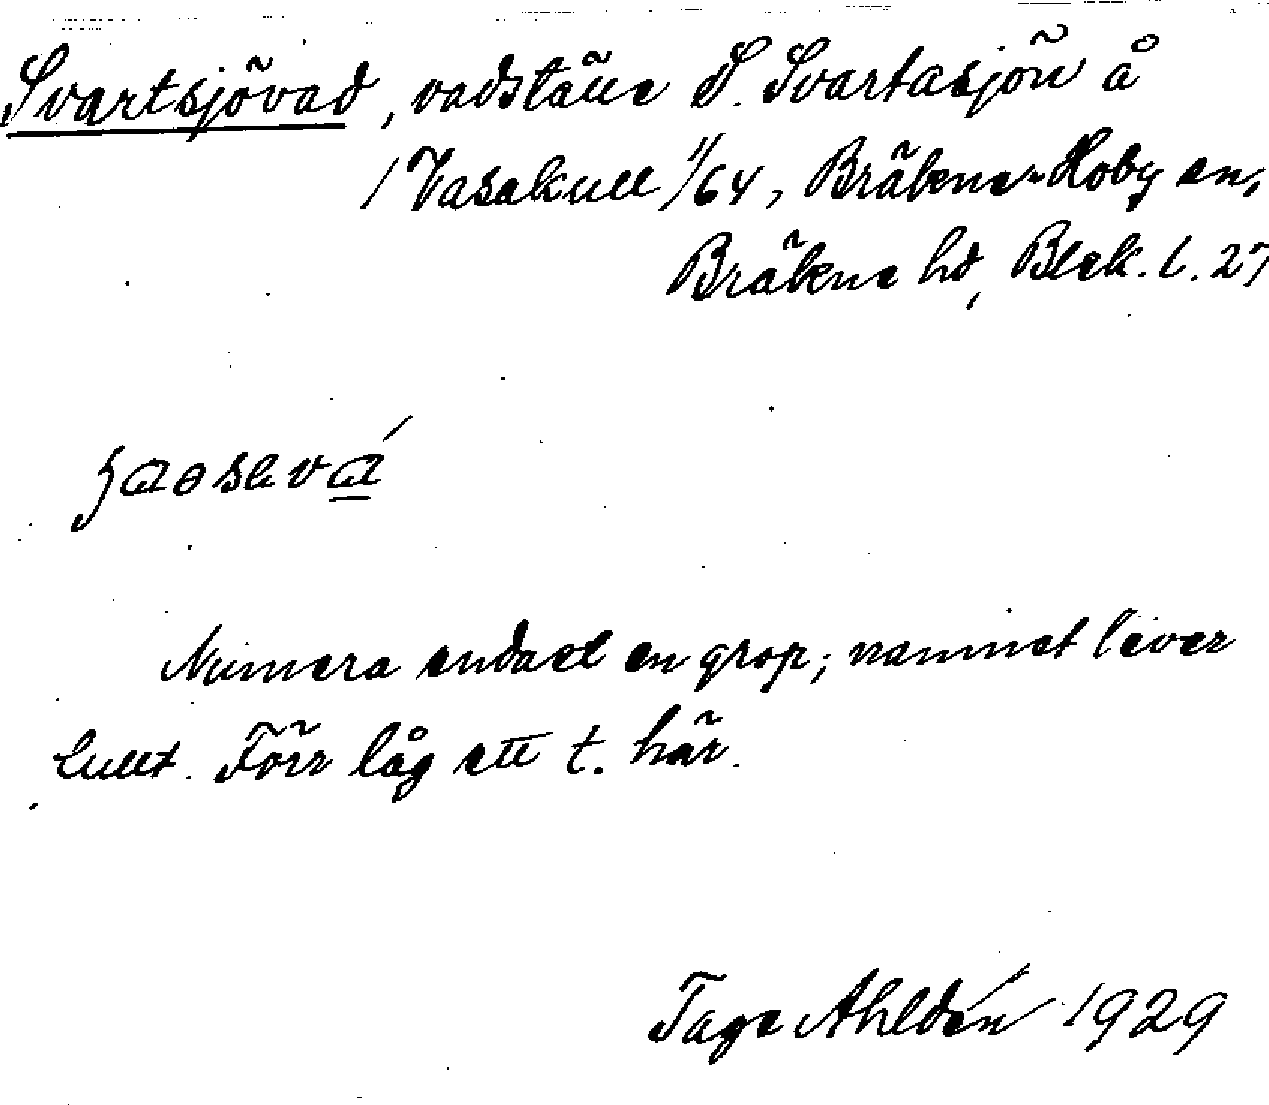 Svartsjövad, vadställe S. Svartasjön å
1 Vasakull 1/64, Bräkne-Hoby sn,
Bräkne hd, Blek. l. 27
Numera endast en grop; namnet lever
kvar. Förr låg ett t. här.
Tage Ahldén 1929